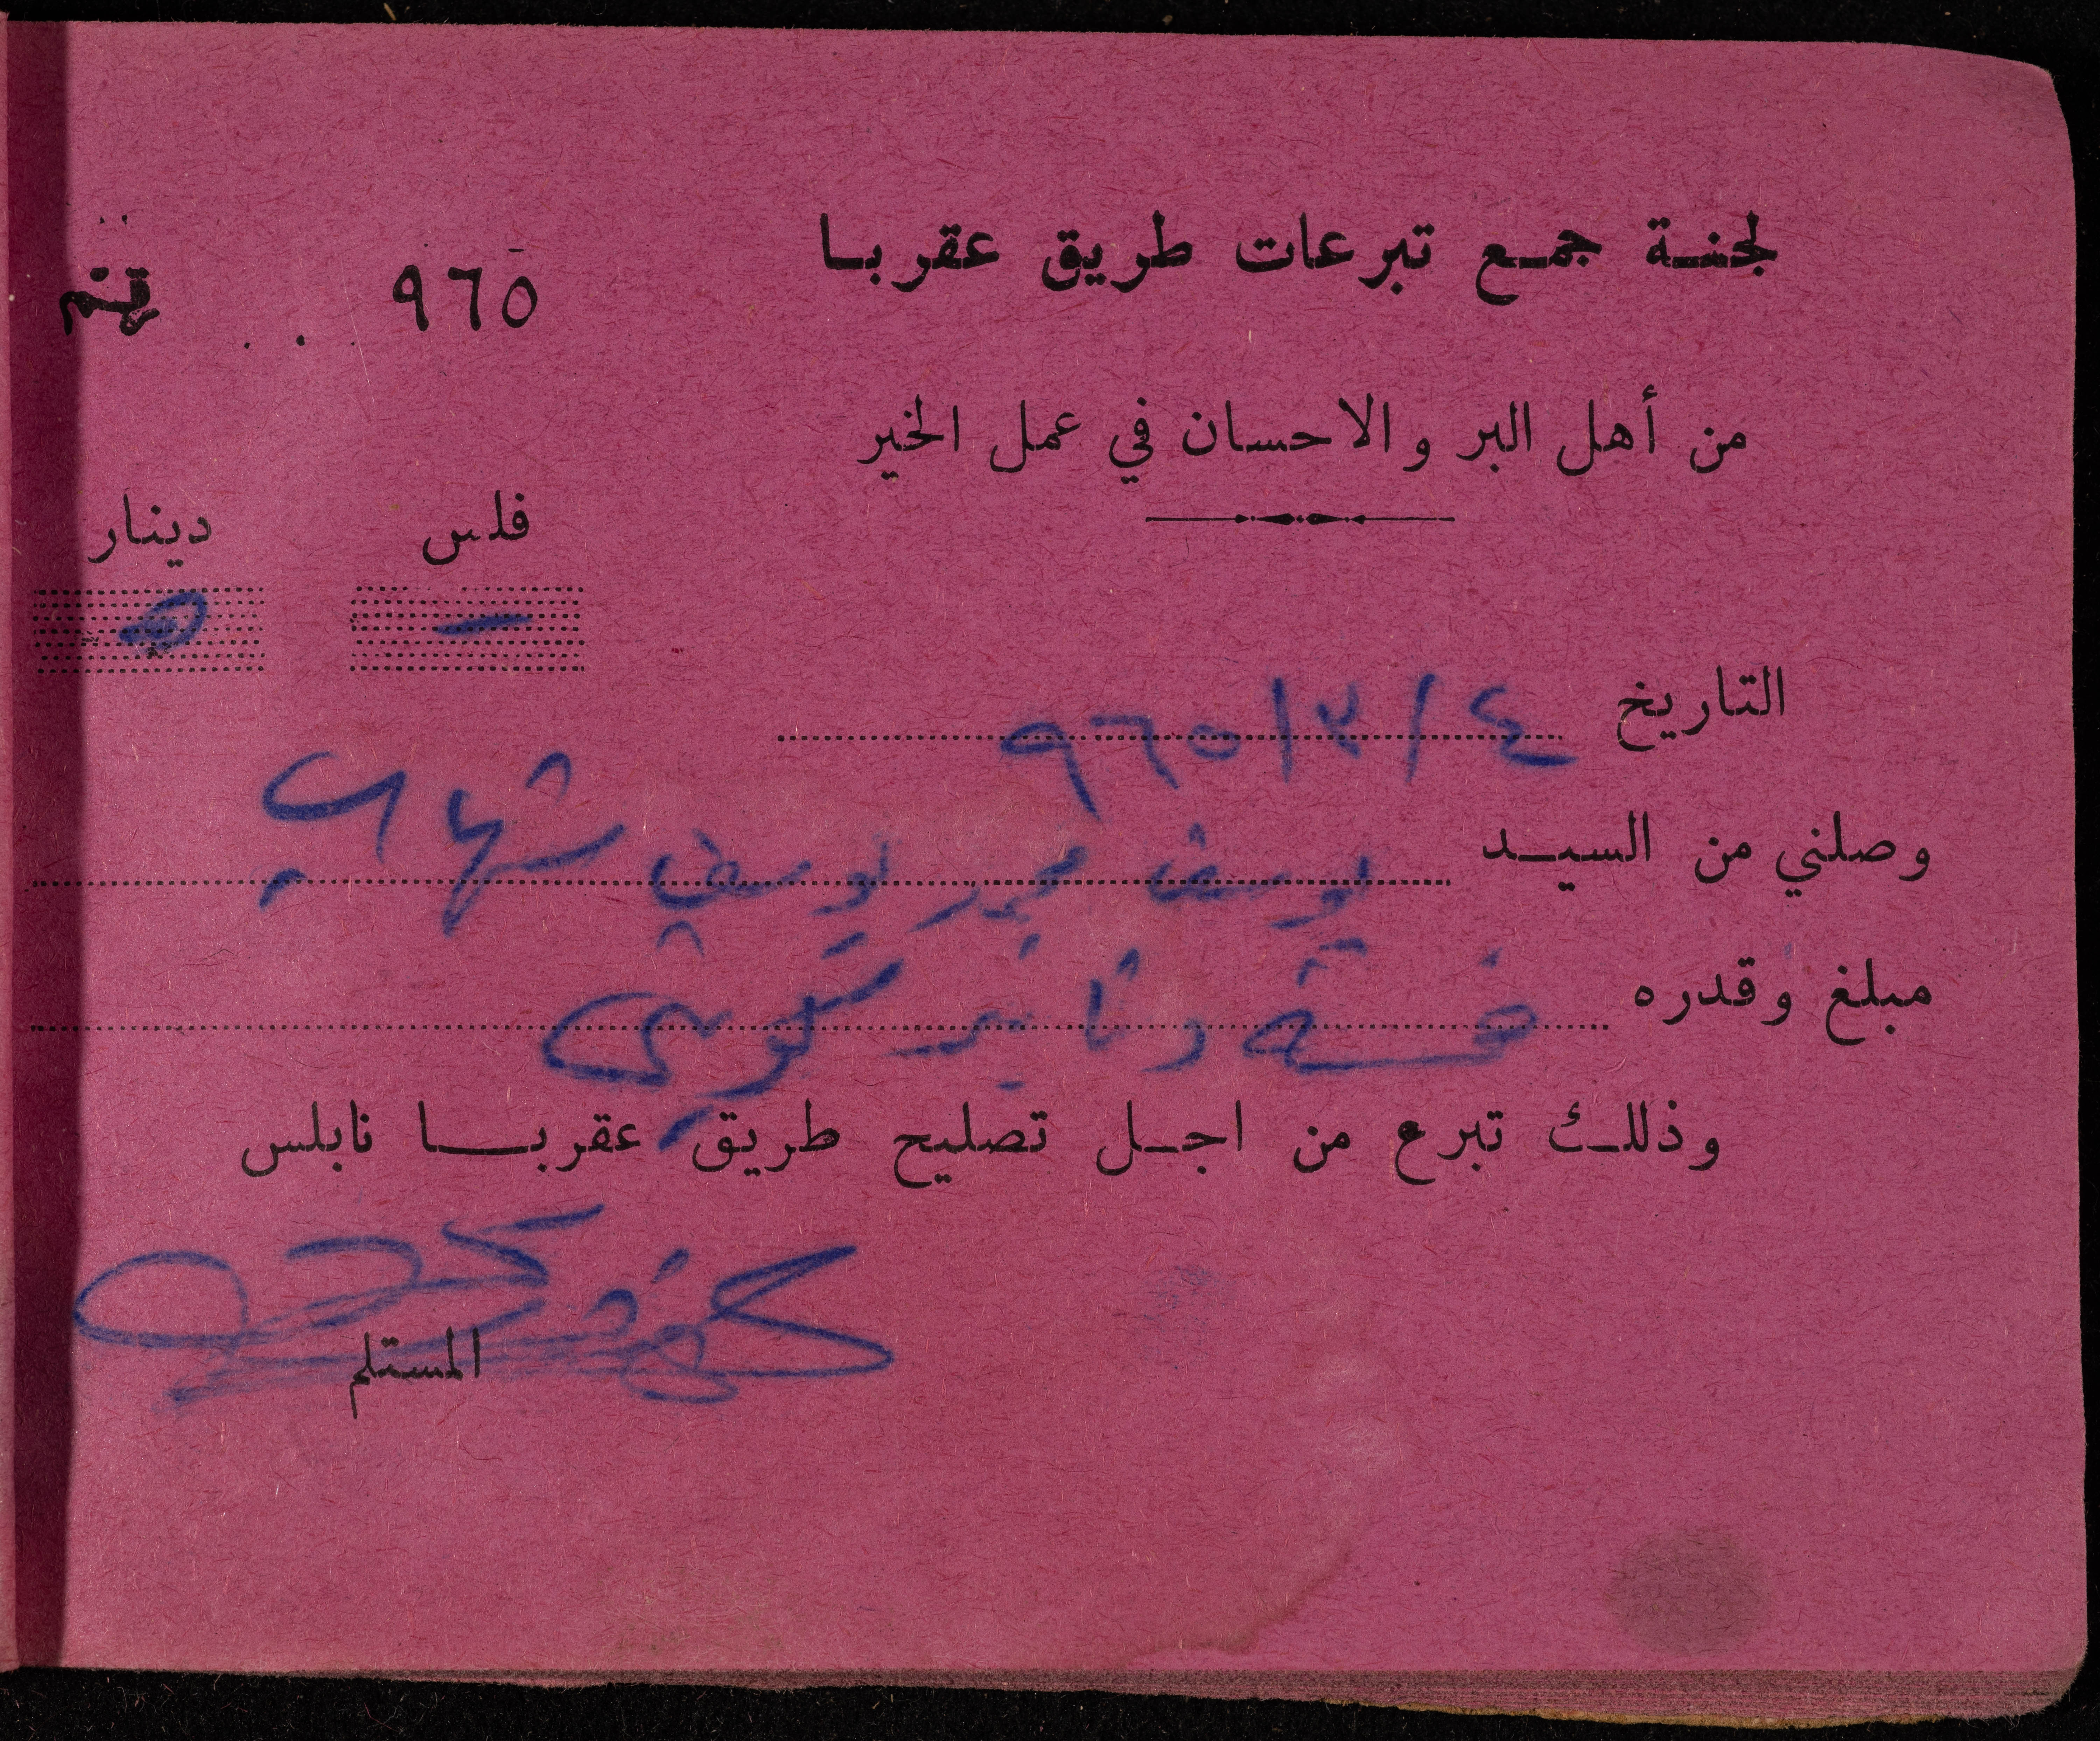 لجنة جمع تبرعات طريق عقربا
٩٦٥
من أهل البر والاحسان في عمل الخير
فلس دينار
— ٥
التاريخ ٤ / ٣ / ٩٦٥
وصلني من السيد يوسف محمد يوسف شهاب
مبلغ وقدره خمسة دنانير كويتي
وذلك تبرع من اجل تصليح طريق عقربا نابلس
المستلم